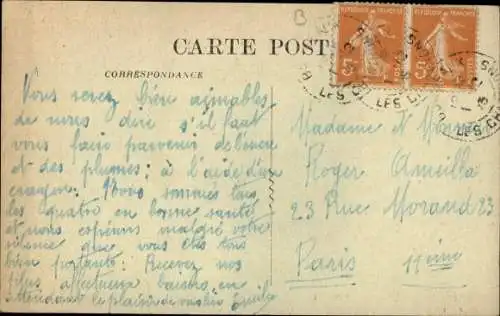 B
CARTE POST
CORRESPONDANCE
REPUBLIQUE FRANÇAISE
REPUBLIQUE FRANÇAISE
5
5
Vous serez bien aimables
de nous dire s'il faut
vous faire parvenir de l'encre
et des plumes; à l'aide d'un
crayon. Nous sommes tous
les quatre en bonne santé
et nous espérons malgré votre
silence que vous êtes tous
bien portants. Recevez nos
plus affectueux baisers en
attendant le plaisir de vous lire Émile
Madame et Monsieur
Roger
23 Rue Morand 23
Paris 11ème